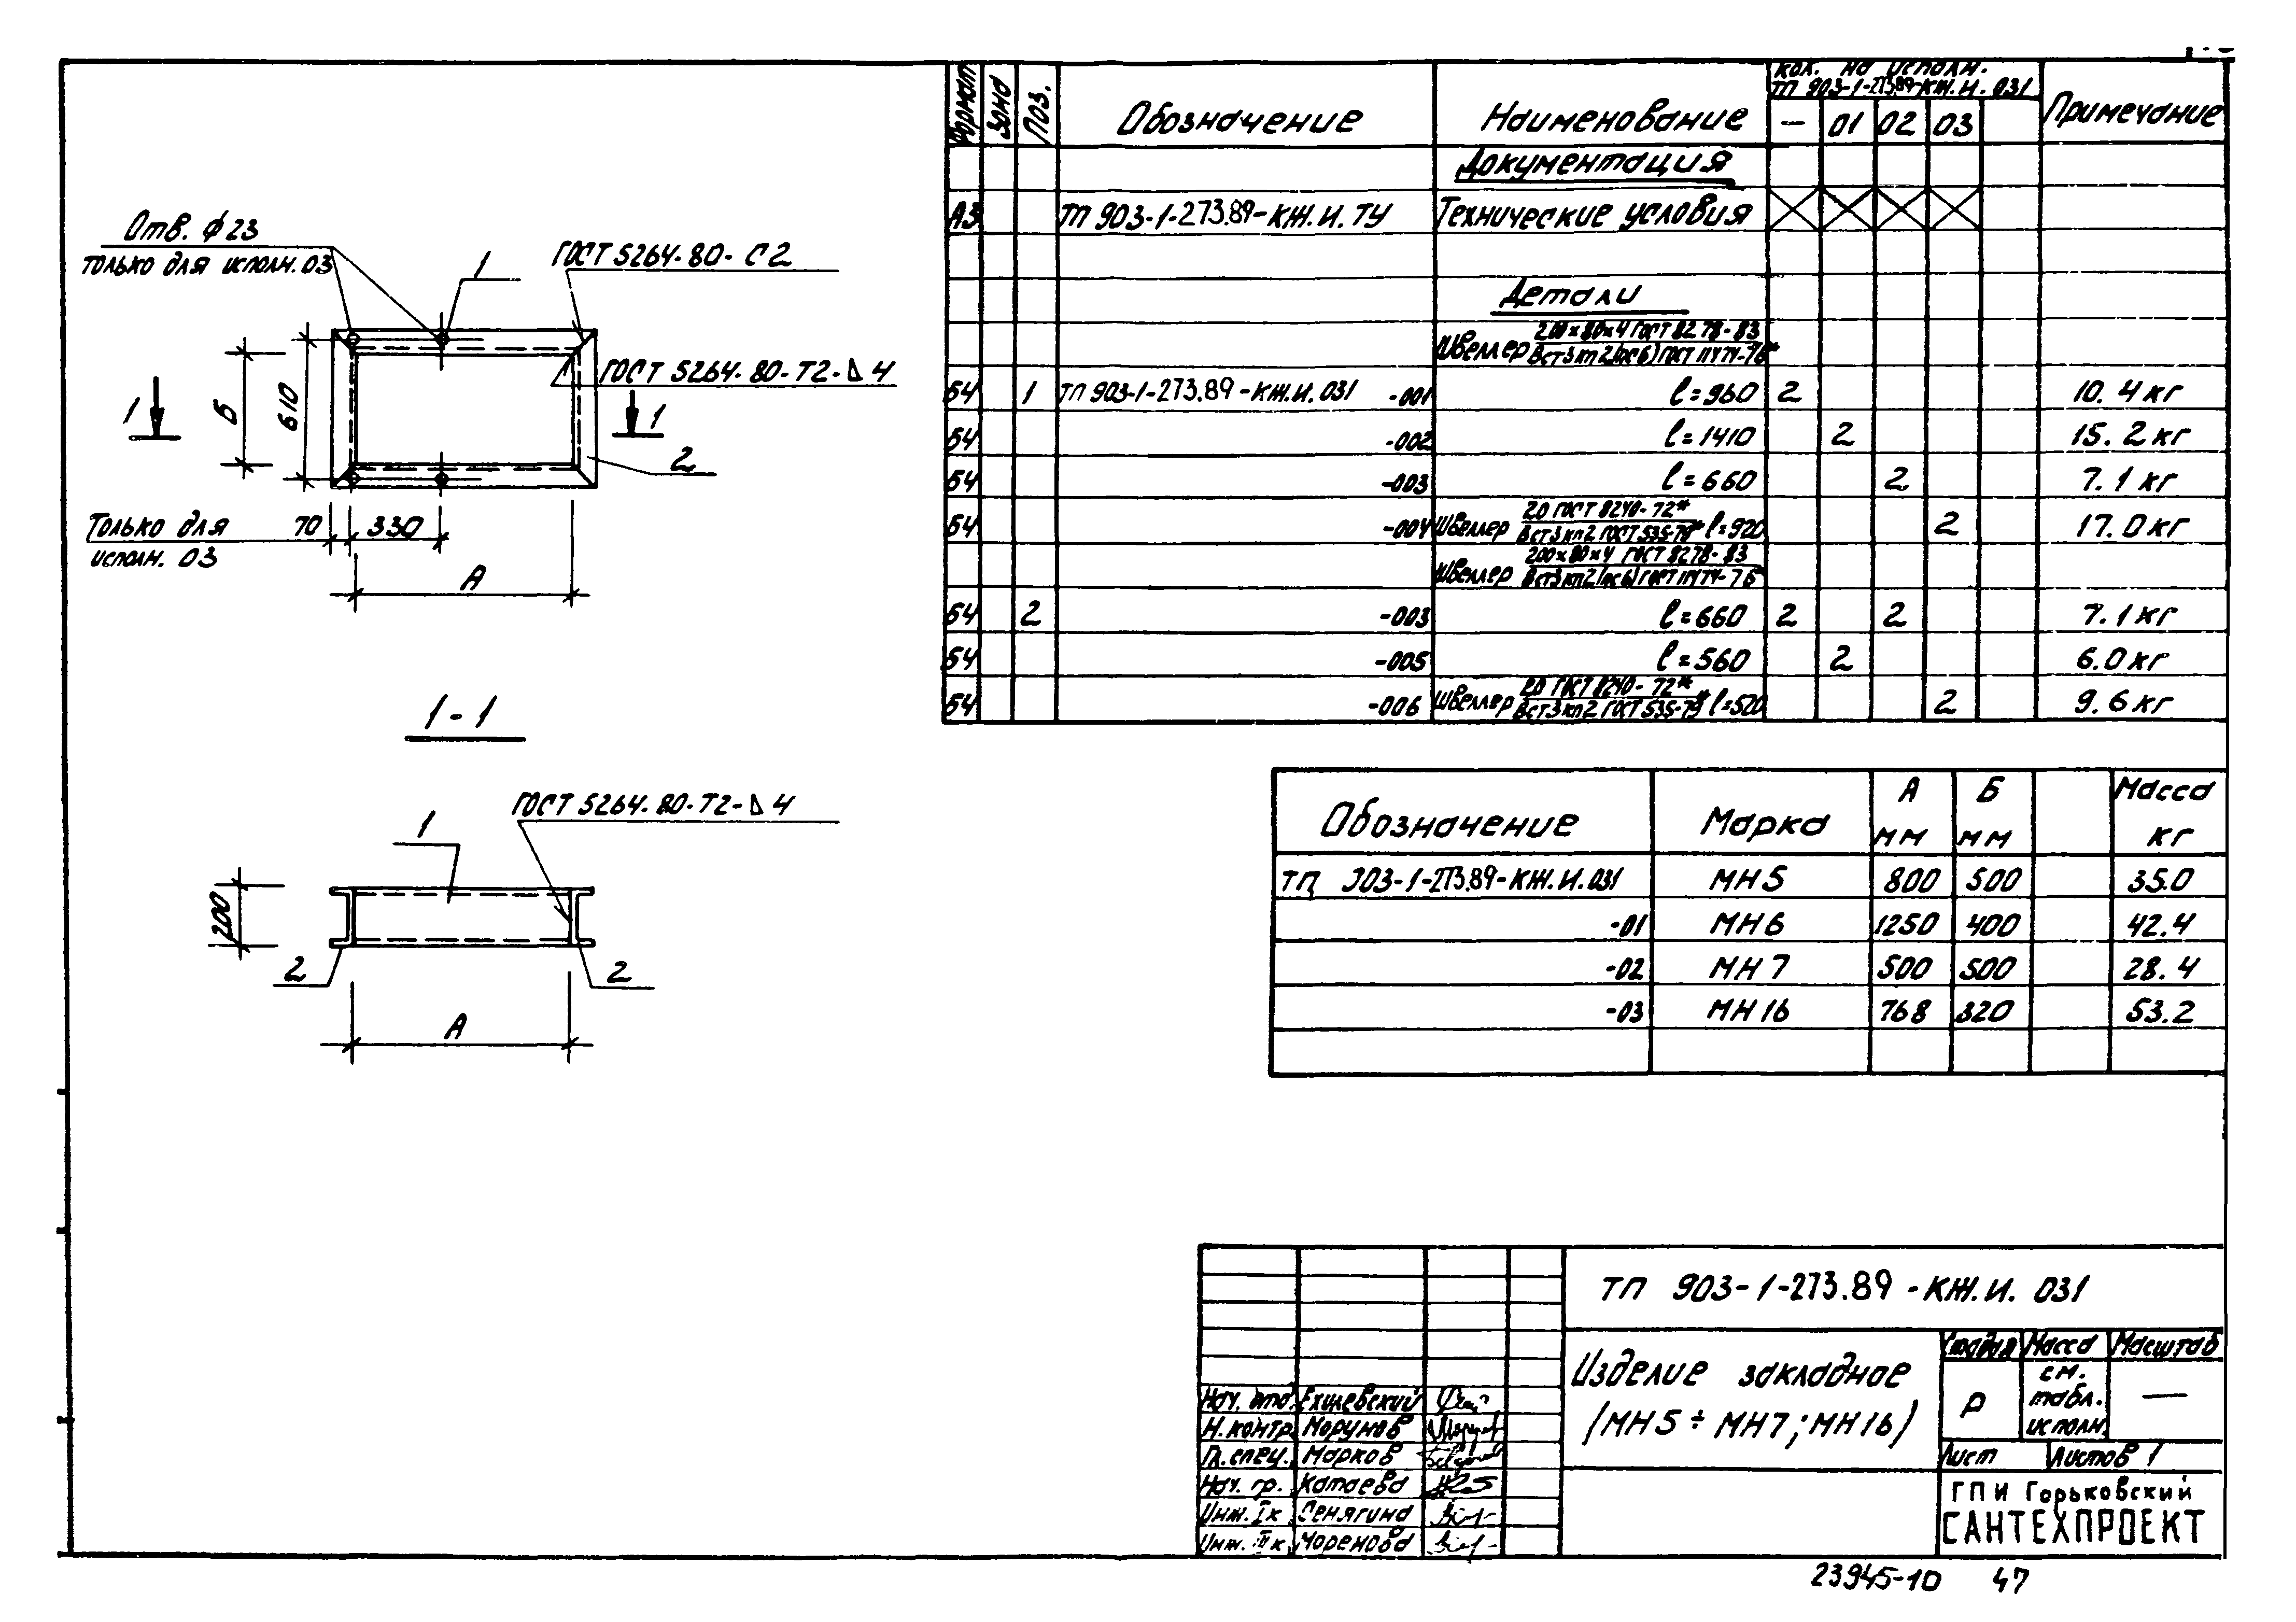 Отв. ϕ23
только для исполн. 03
1
ГОСТ 5264-80-С2
ГОСТ 5264-80-Т2-⊿4
1
1
Б
610
2
Только для
исполн. 03
70
330
А
1-1
ГОСТ 5264-80-Т2-⊿4
1
200
2
2
А
Формат Зона Поз. Обозначение Наименование Кол. на исполн. Примечание
ТП 903-1-273.89-КЖ.И.031
— 01 02 03
Документация
А3 ТП 903-1-273.89-КЖ.И.ТУ Технические условия
Детали
Швеллер 200×80×4 ГОСТ 8278-83
Вст3кп2(пс6) ГОСТ 11474-76*
БЧ 1 ТП 903-1-273.89-КЖ.И.031 -001 ℓ=960 2 10.4кг
БЧ -002 ℓ=1410 2 15.2кг
БЧ -003 ℓ=660 2 7.1кг
БЧ -004 Швеллер 20 ГОСТ 8240-72* ℓ=920 2 17.0кг
Вст3кп2 ГОСТ 535-79*
Швеллер 200×80×4 ГОСТ 8278-83
Вст3кп2(пс6) ГОСТ 11474-76*
БЧ 2 -003 ℓ=660 2 2 7.1кг
БЧ -005 ℓ=560 2 6.0кг
БЧ -006 Швеллер 20 ГОСТ 8240-72* ℓ=520 2 9.6кг
Вст3кп2 ГОСТ 535-79*
Обозначение Марка А мм Б мм Масса кг
ТП 903-1-273.89-КЖ.И.031 МН5 800 500 35.0
-01 МН6 1250 400 42.4
-02 МН7 500 500 28.4
-03 МН16 768 320 53.2
ТП 903-1-273.89-КЖ.И.031
Изделие закладное
(МН5÷МН7; МН16)
Стадия Масса Масштаб
Р см. табл. исполн. —
Лист Листов 1
Нач. отд.
Н.контр. Морунов
Гл.спец. Марков
Нач. гр. Катаева
Инж. Iк Сенягина
Инж. IIк
ГПИ Горьковский
САНТЕХПРОЕКТ
23945-10 47